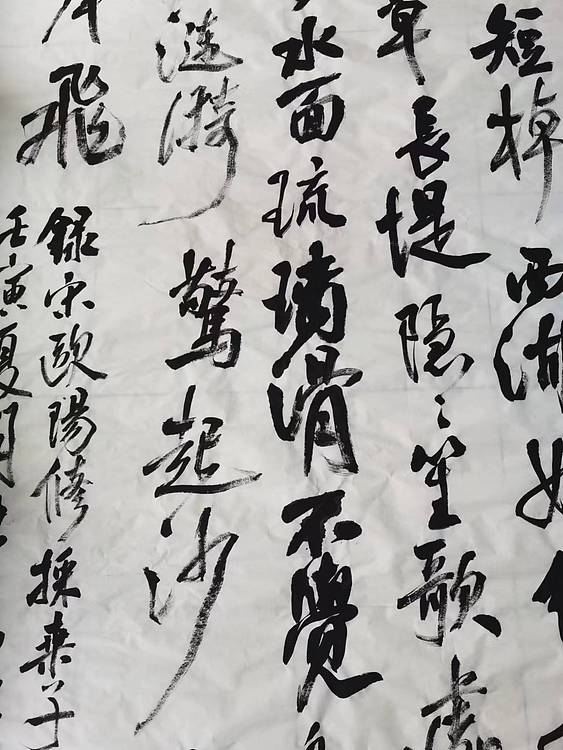 短棹西湖好
草長堤隱〻笙歌處
水面琉璃滑不覺
漣漪驚起沙
岸飛
錄宋歐陽脩採桑子
壬寅夏月